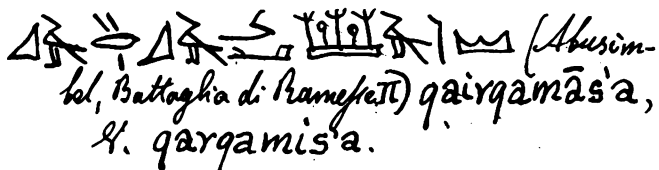 (Abusim-
bel, Battaglia di Ramesse II) qairqamāśa,
V. qarqamiśa.